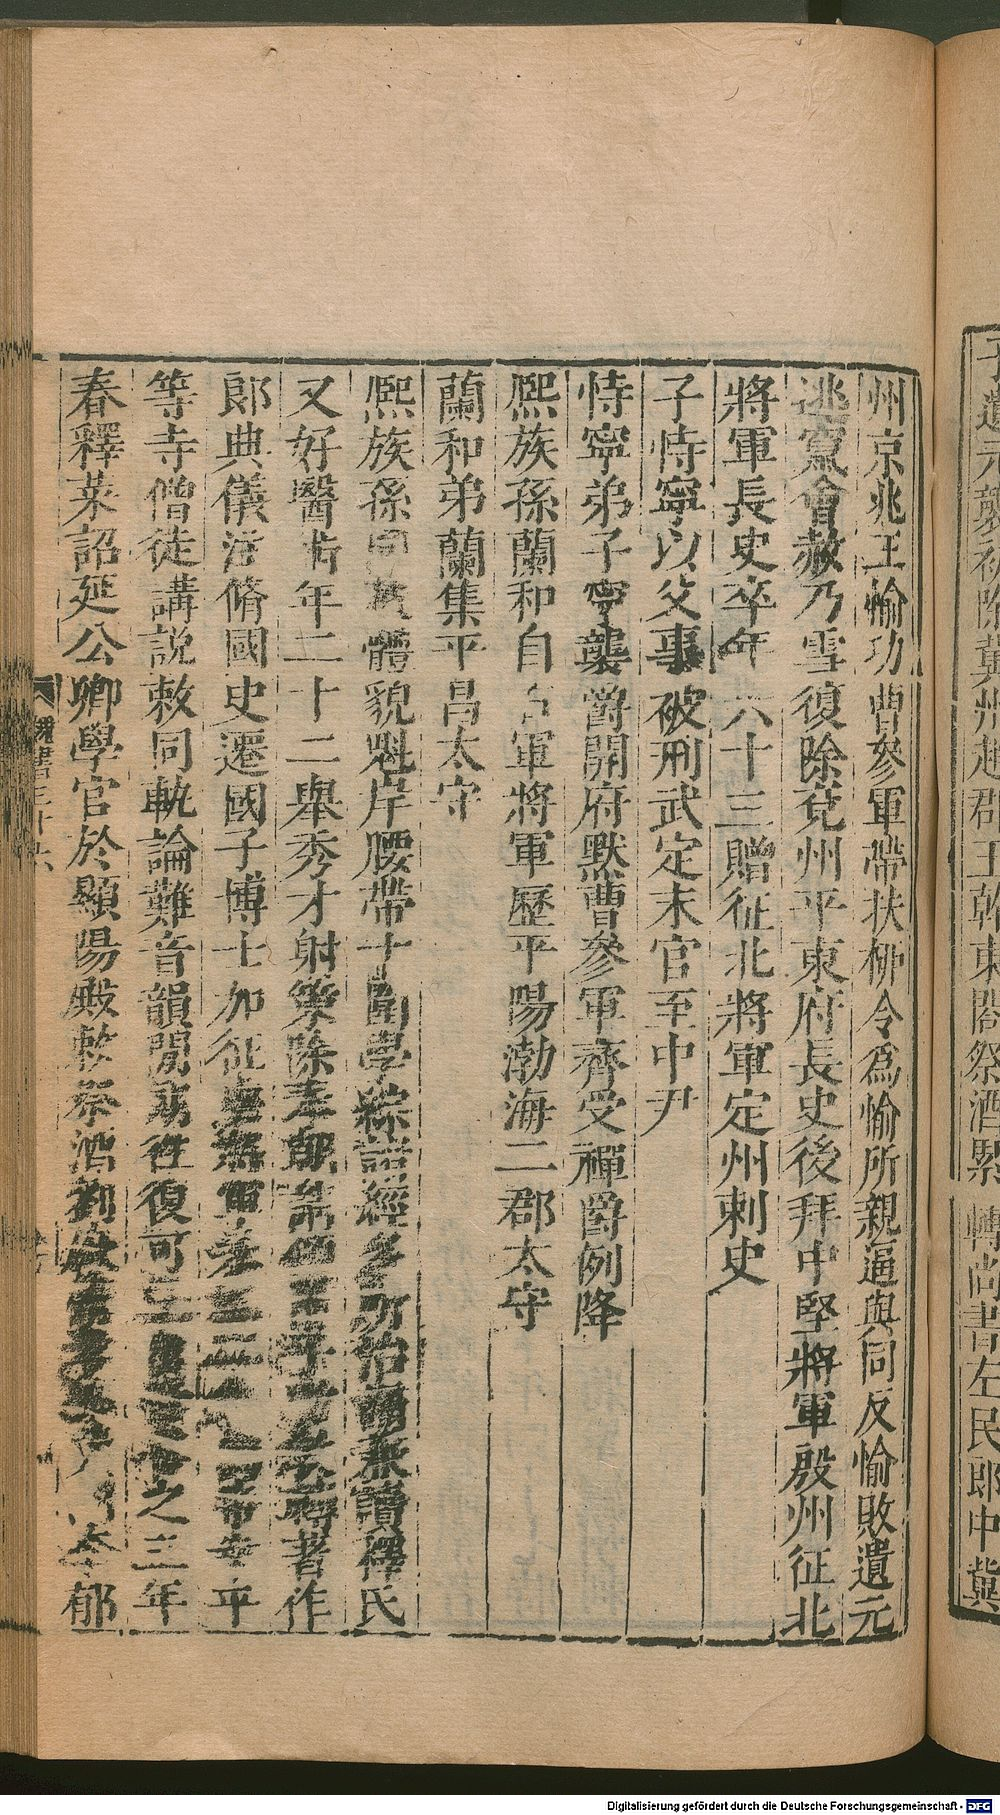 子遺元襲初除冀州趙郡王幹東閤祭酒 轉尚書左民郎中冀
州京兆王愉功曹參軍帶扶柳令爲愉所親逼與同反愉敗遺元
逃竄會赦乃雪復除兗州平東府長史後拜中堅將軍殷州征北
將軍長史卒年六十三贈征北將軍定州刺史
子恃寧以父事破刑武定末官至中尹
恃寧弟子寧襲爵開府默曹參軍齊受禪爵例降
熙族孫蘭和自 軍將軍歷平陽渤海二郡太守
蘭和弟蘭集平昌太守
熙族孫 體貌魁岸腰帶十圍學綜諸經多所治 兼讀釋氏
又好醫 年二十二舉秀才射策除奉朝 著作
郎典儀注脩國史遷國子博士加征 軍 平
等寺僧徒講說敕同軌論難音韻閒 往復可 之三年
春釋菜詔延公卿學官於顯陽殿敕祭酒劉 李郁
魏書三十六
Digitalisierung gefördert durch die Deutsche Forschungsgemeinschaft - DFG